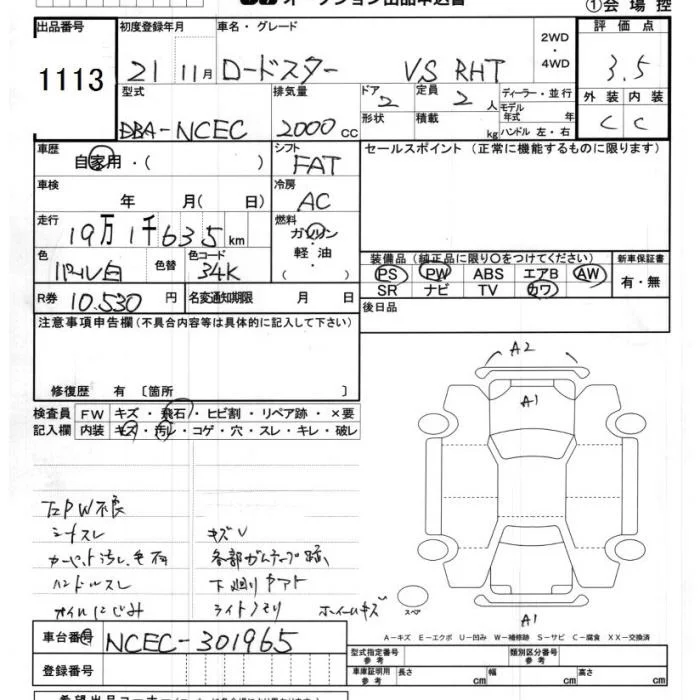 オークション出品申込書 ①会場控
出品番号 初度登録年月 車名・グレード 2WD・4WD 評価点
1113 21 11月 ロードスター VS RHT 3.5
型式 排気量 ドア 定員 ディーラー・並行 外装 内装
DBA-NCEC 2000cc 2 2人 モデル年式 年 C C
形状 積載 kg ハンドル 左・右
車歴 シフト セールスポイント(正常に機能するものに限ります)
自家用・( ) FAT
車検 冷房
年 月(日) AC
走行 燃料
19万1千635km ガソリン
軽油
( )
色 色替 色コード 装備品(純正品に限り○をつけてください) 新車保証書
パール白 34K PS PW ABS エアB AW 有・無
SR ナビ TV カワ
R券 10.530円 名変通知期限 月 日 後日品
注意事項申告欄(不具合内容等は具体的に記入して下さい)
修復歴 有〔箇所 〕
検査員 FW キズ・飛石・ヒビ割・リペア跡・×要
記入欄 内装 キズ・汚レ・コゲ・穴・スレ・キレ・破レ
A2
A1
左PW不良
シートスレ キズU
カーペット汚レ 各部ガムテープ跡
ハンドルスレ 下廻り
オイルにじみ ライトクモリ ホイールキズ
スペア
A1
A−キズ E−エクボ U−凹み W−補修跡 S−サビ C−腐食 XX−交換済
車台番号 NCEC-301965
型式指定番号 参考 類別区分番号 参考
登録番号 車庫証明用 参考 長さ cm 幅 cm 高さ cm